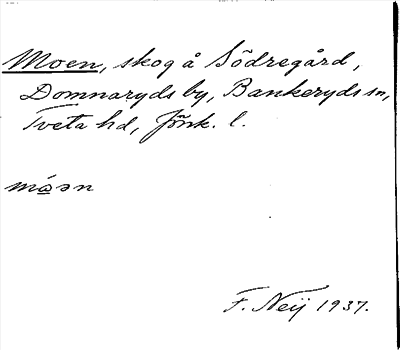 Moen, skog å Södregård,
Domnaryds by, Bankeryds sn,
Tveta hd, Jönk. l.
móən
F. Neij 1937.